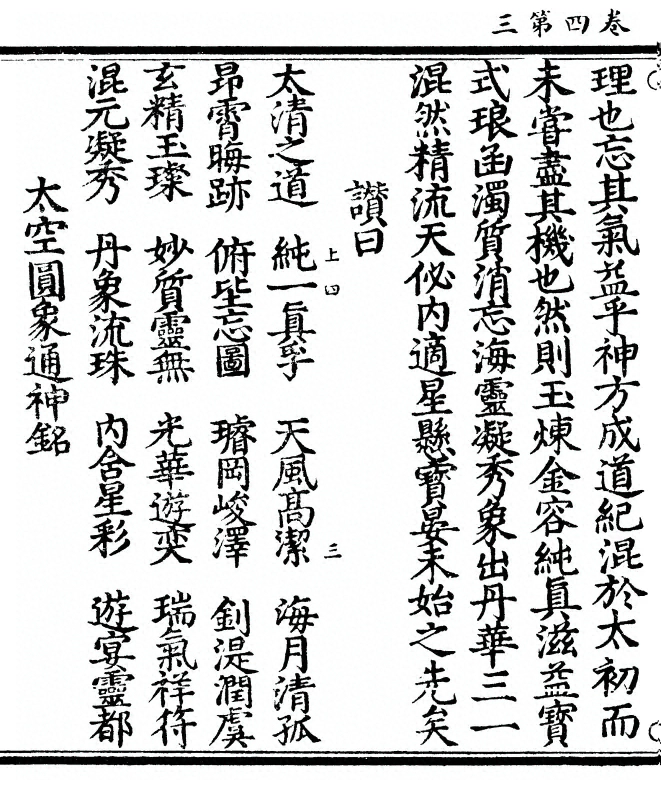 三第四卷
理也忘其氣益乎神方成道紀混於太初而
未嘗盡其機也然則玉煉金容純真滋益寶
式琅函濁質消忘海靈凝秀象出丹華三一
混然精流天佖内適星懸寶晏未始之先矣
讚曰
太清之道　純一真孚　天風高潔　海月清孤
上四　三
昂霄晦跡　俯坒忘圖　璿岡峻澤　釗湜潤虞
玄精玉璨　妙質靈無　光華遊奕　瑞氣祥符
混元凝秀　丹象流珠　内含星彩　遊宴靈都
太空圓象通神銘